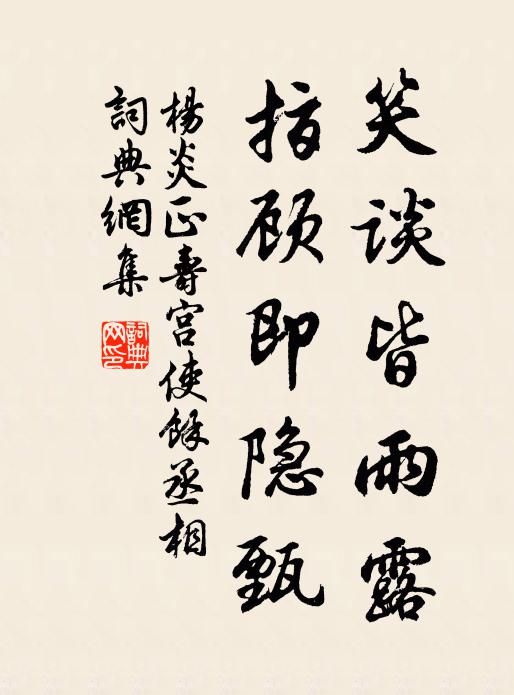 笑谈皆雨露
指顾即隐甄
楊炎正壽宫使餘丞相
詞典網集
詞典網印